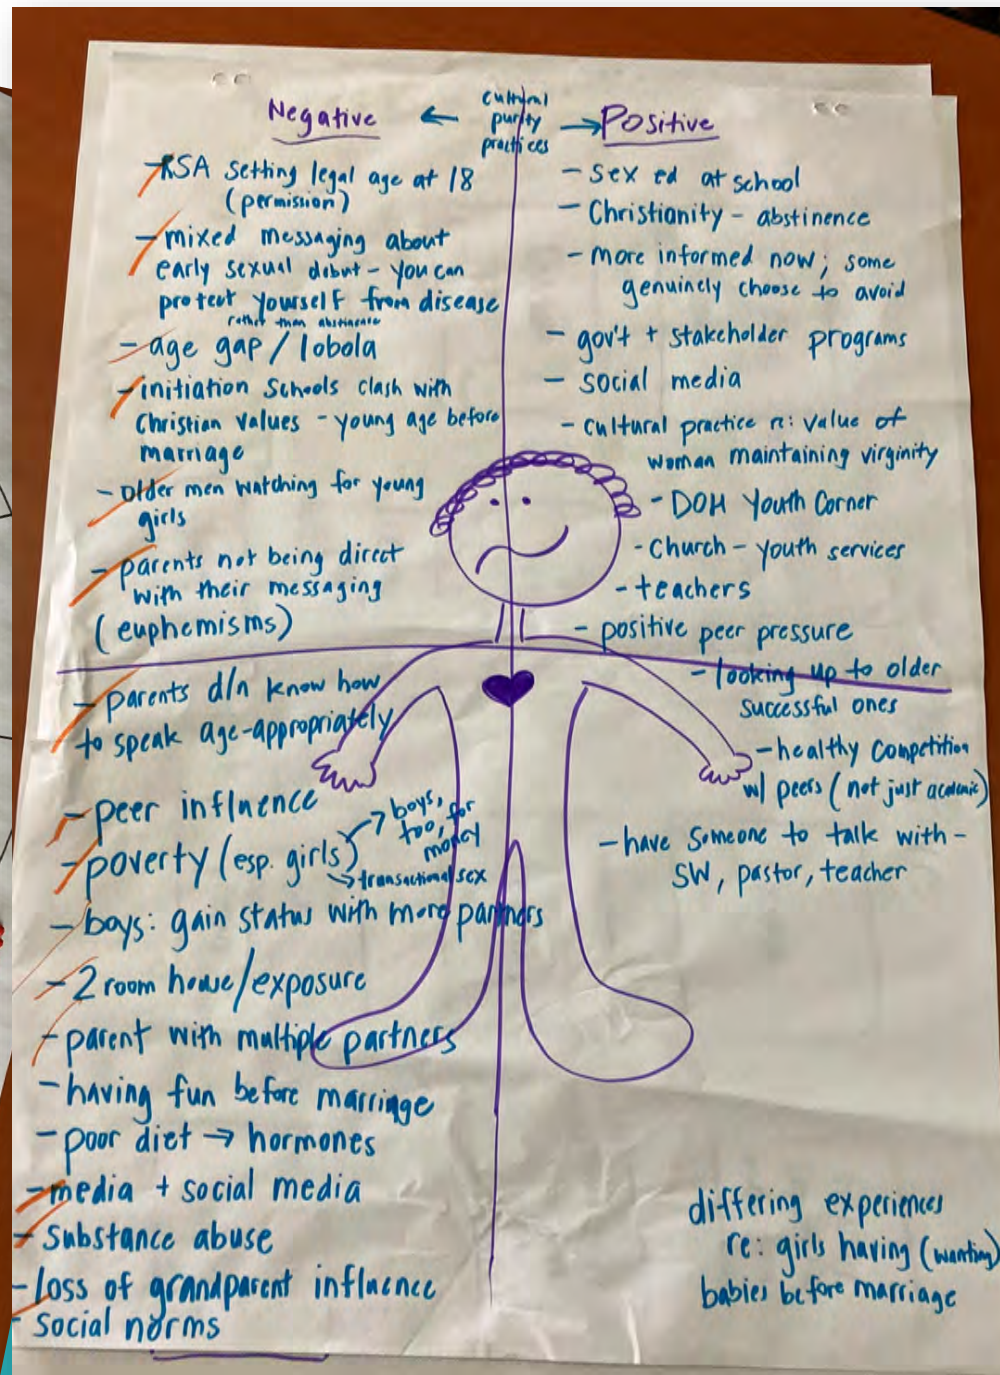 Negative ← cultural purity practices → Positive
- RSA setting legal age at 18
(permission)
- mixed messaging about
early sexual debut - you can
protect yourself from disease
rather than abstinence
- age gap / lobola
- initiation schools clash with
Christian values - young age before
marriage
- older men watching for young
girls
- parents not being direct
with their messaging
(euphemisms)
- parents d/n know how
to speak age-appropriately
- peer influence
- poverty (esp. girls)
→ boys,
too, for
money
→ transactional sex
- boys: gain status with more partners
- 2 room house/exposure
- parent with multiple partners
- having fun before marriage
- poor diet → hormones
- media + social media
- substance abuse
- loss of grandparent influence
- social norms
- sex ed at school
- Christianity - abstinence
- more informed now; some
genuinely choose to avoid
- gov't + stakeholder programs
- social media
- cultural practice re: value of
woman maintaining virginity
- DOH Youth Corner
- Church - youth services
- teachers
- positive peer pressure
- looking up to older
successful ones
- healthy competition
w/ peers (not just academic)
- have someone to talk with -
SW, pastor, teacher
differing experiences
re: girls having (wanting)
babies before marriage